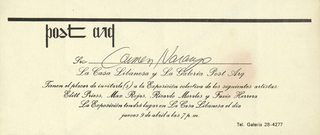 post arq
Carmen Naranjo
La Casa Libanesa y La Galería Post Arq
Tienen el placer de invitarle(s) a la Exposición colectiva de los siguientes artistas
Edith Priess, Max Rojas, Ricardo Morales y Fario Herrera
La Exposición tendrá lugar en La Casa Libanesa el día
jueves 9 de abril a las 7 p.m.
Tel. Galería 28-4277